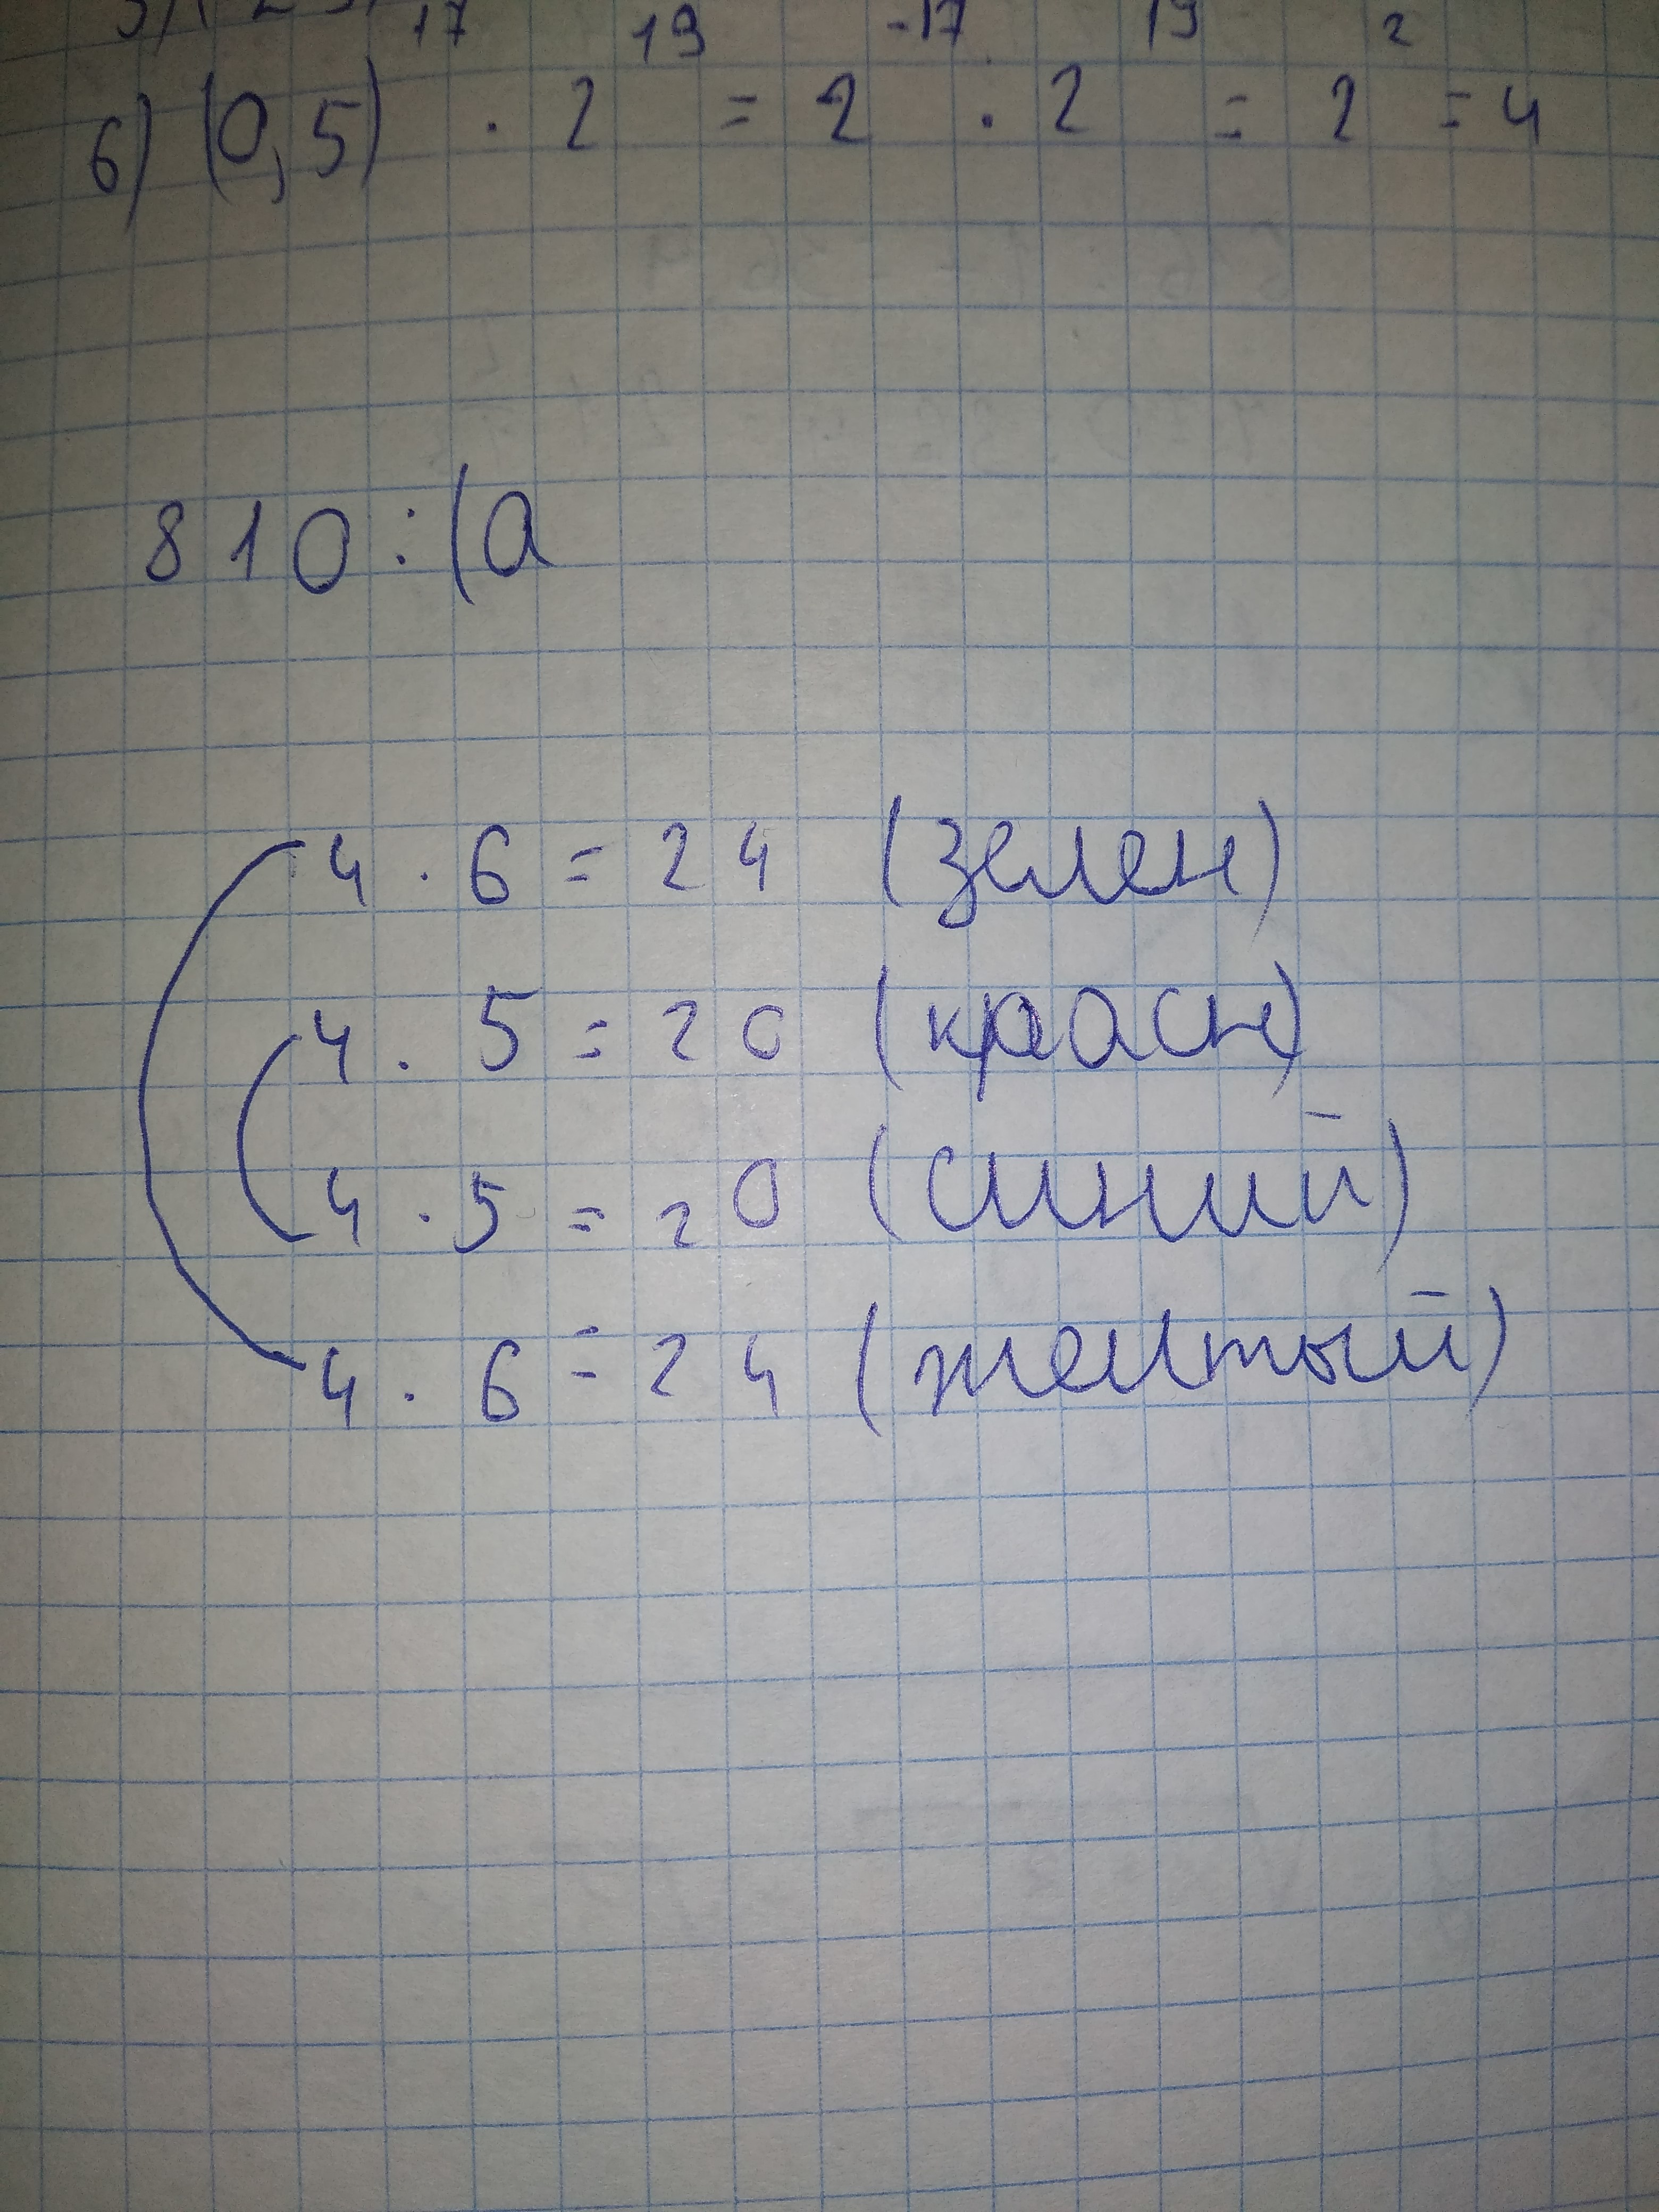 6) (0,5)¹⁷ · 2¹⁹ = 2⁻¹⁷ · 2¹⁹ = 2² = 4
810 : (a
4 · 6 = 24 (зелен)
4 · 5 = 20 (красн)
4 · 5 = 20 (синий)
4 · 6 = 24 (желтый)